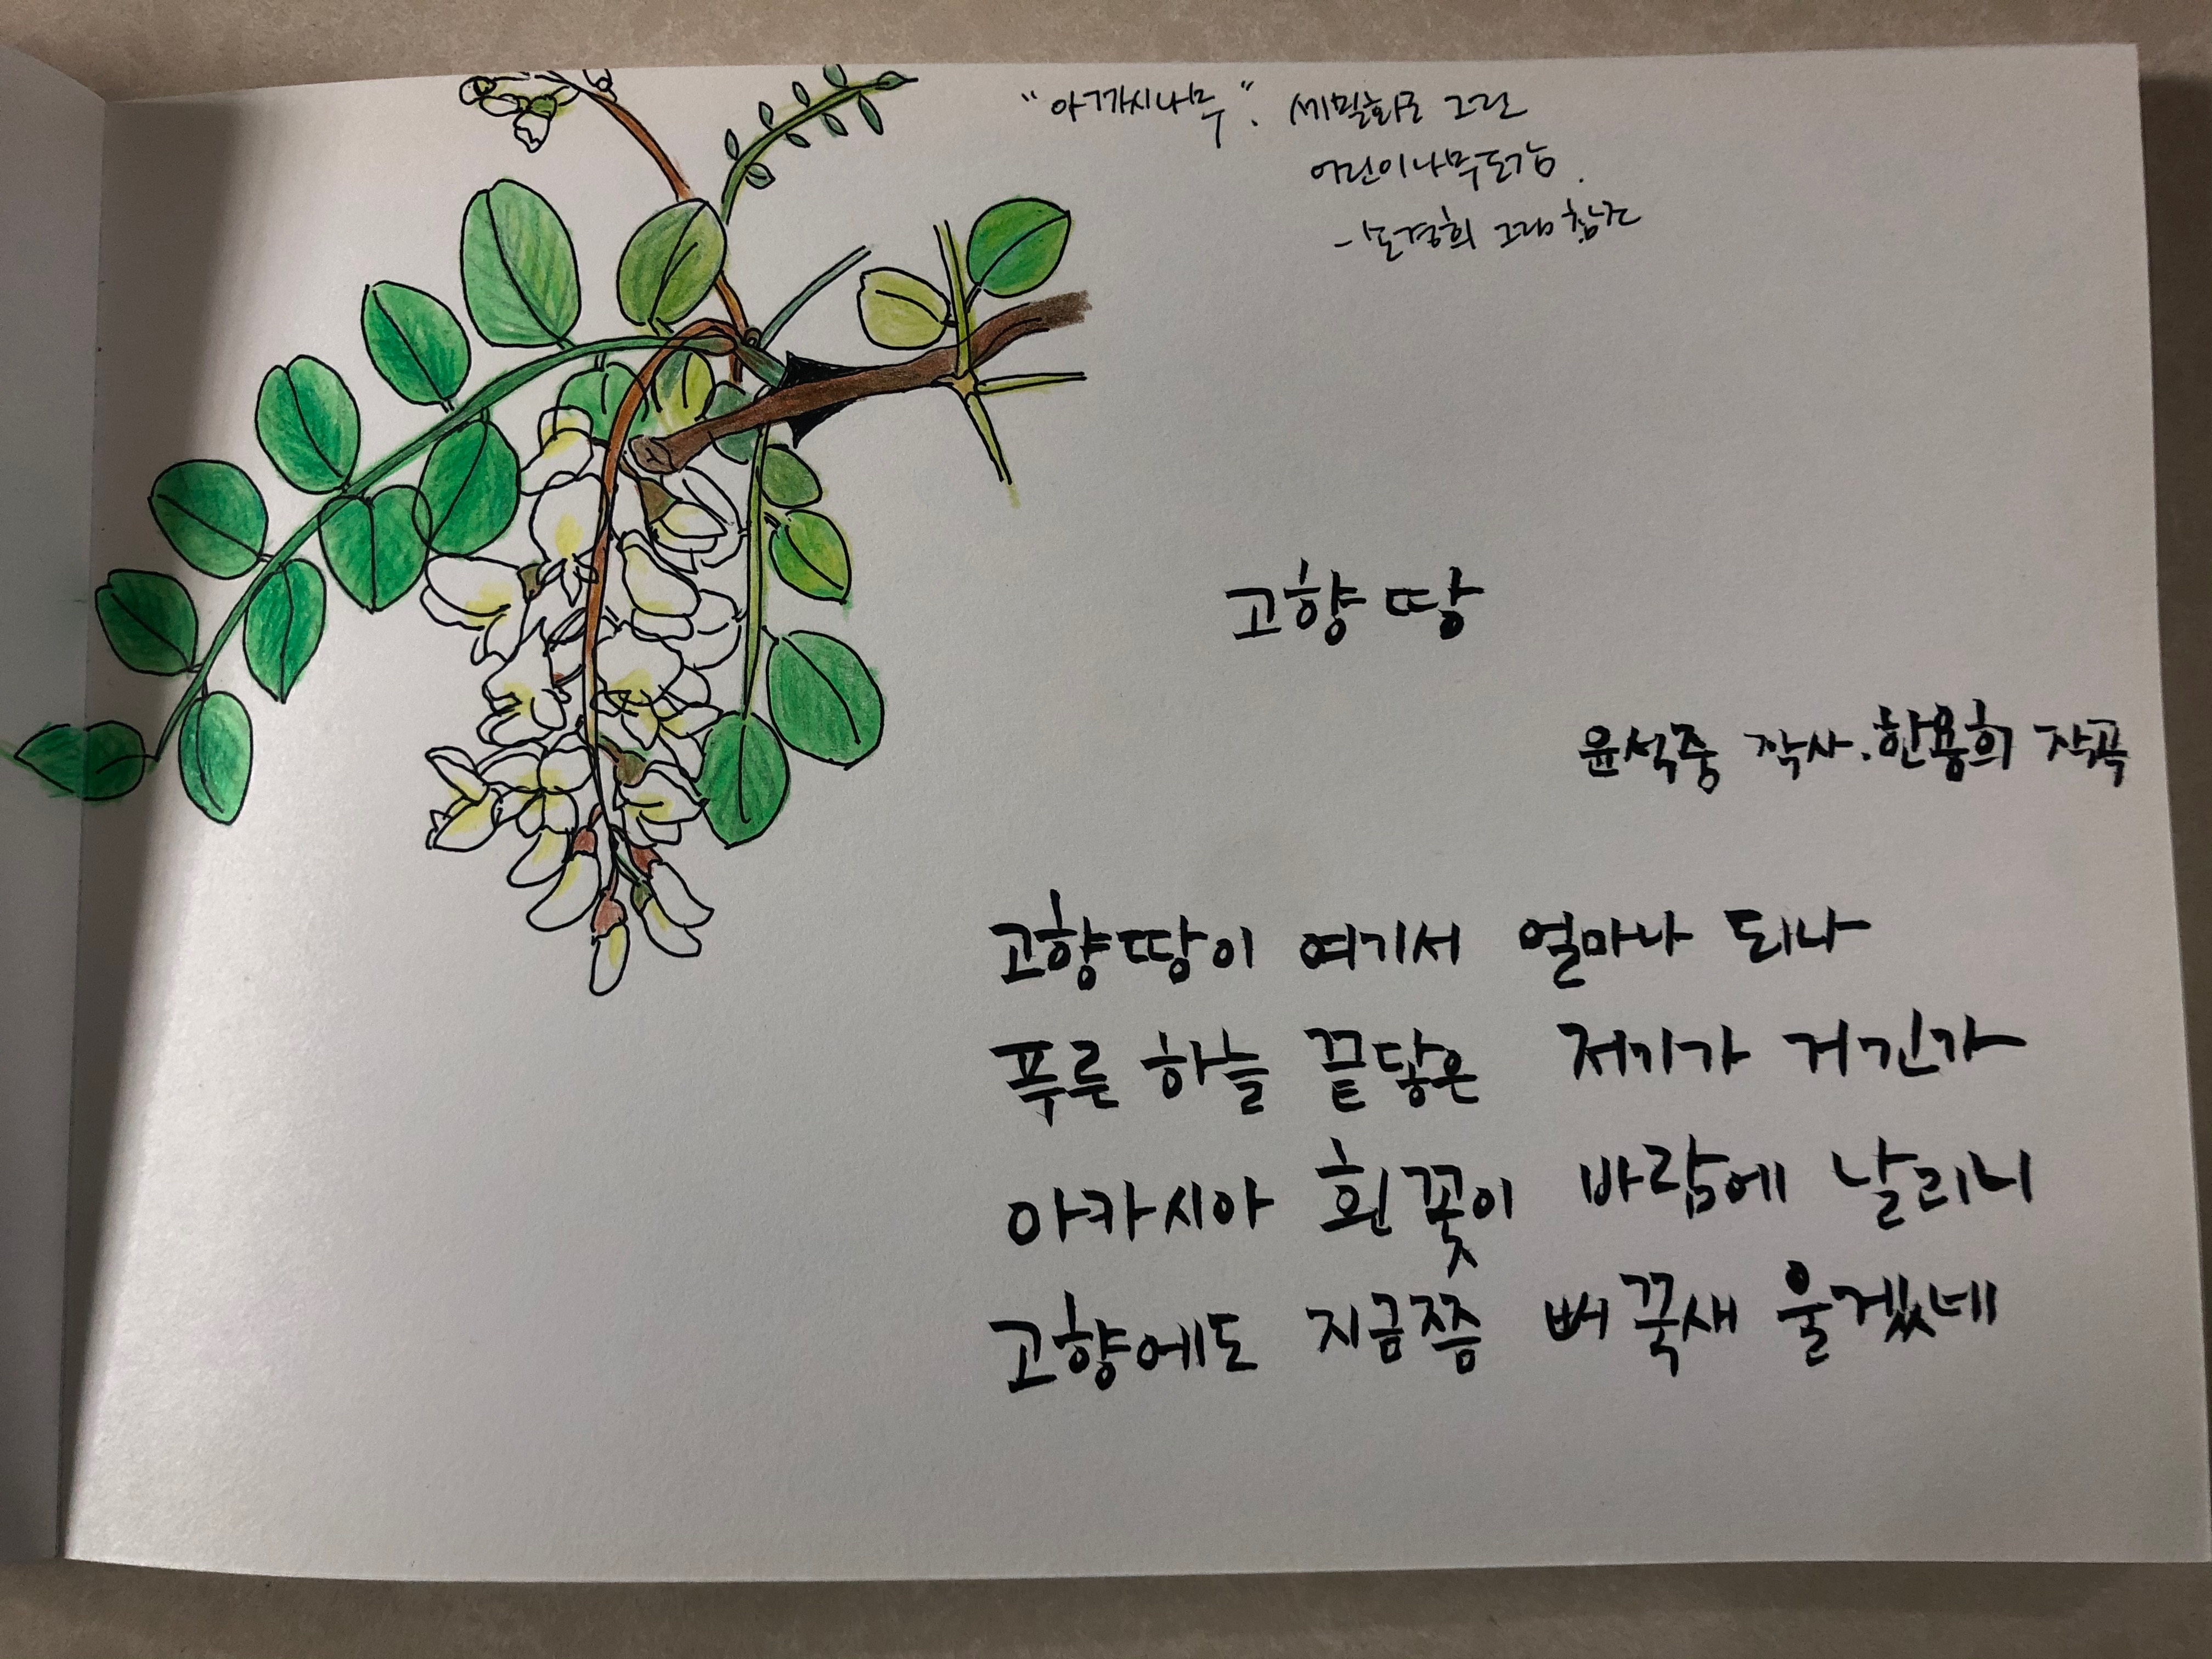 "아까시나무". 세밀화로 그린
어린이나무도감.
- 손경희 그림 참조
고향 땅
윤석중 작사. 한용희 작곡
고향땅이 여기서 얼마나 되나
푸른 하늘 끝닿은 저기가 거긴가
아카시아 흰꽃이 바람에 날리니
고향에도 지금쯤 뻐꾹새 울겠네